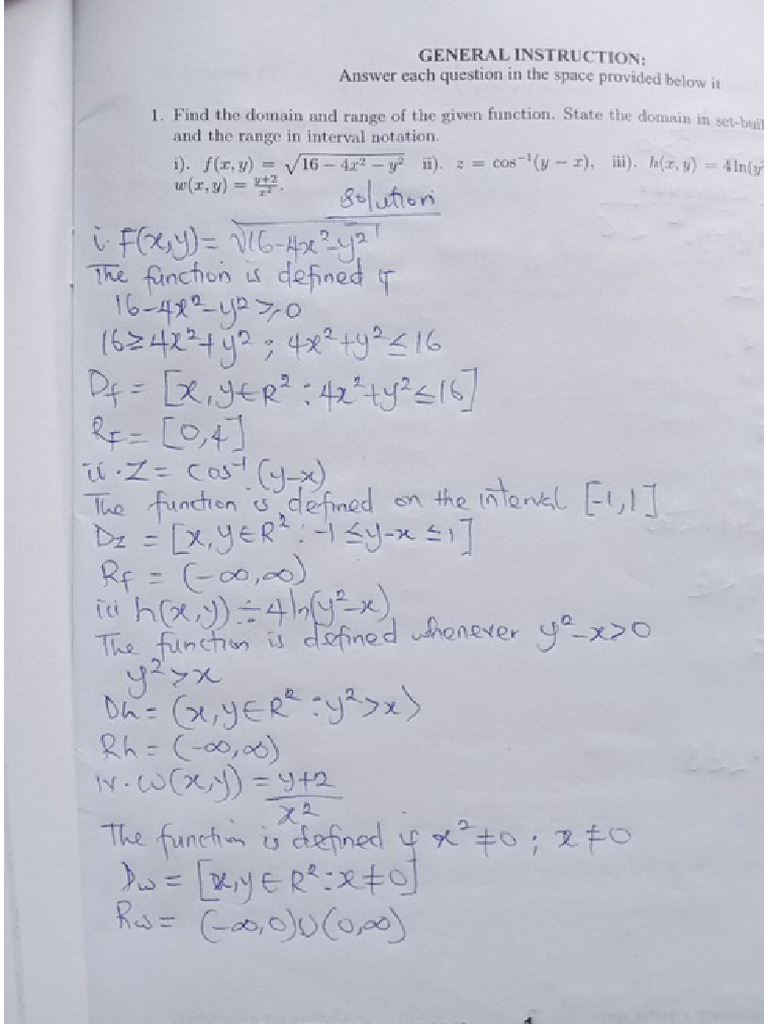 GENERAL INSTRUCTION:
Answer each question in the space provided below it
1. Find the domain and range of the given function. State the domain in set-buil
and the range in interval notation.
i). f(x, y) = √(16 − 4x² − y²) ii). z = cos⁻¹(y − x), iii). h(x, y) = 4 ln(y²
w(x, y) = (y+2)/x².
Solution
i. F(x,y) = √(16-4x²-y²)
The function is defined if
16-4x²-y² ≥ 0
16 ≥ 4x² + y² ; 4x² + y² ≤ 16
Df = [x, y ∈ R² : 4x² + y² ≤ 16]
RF = [0,4]
ii. Z = Cos⁻¹ (y-x)
The function is defined on the interval [-1,1]
Dz = [x, y ∈ R² : -1 ≤ y-x ≤ 1]
Rf = (-∞,∞)
iii h(x,y) = 4ln(y²-x)
The function is defined whenever y²-x>0
y² > x
Dh = (x, y ∈ R² : y² > x)
Rh = (-∞,∞)
iv. w(x,y) = y+2
x²
The function is defined if x² ≠ 0 ; x ≠ 0
Dw = [x, y ∈ R² : x ≠ 0]
Rw = (-∞,0)∪(0,∞)